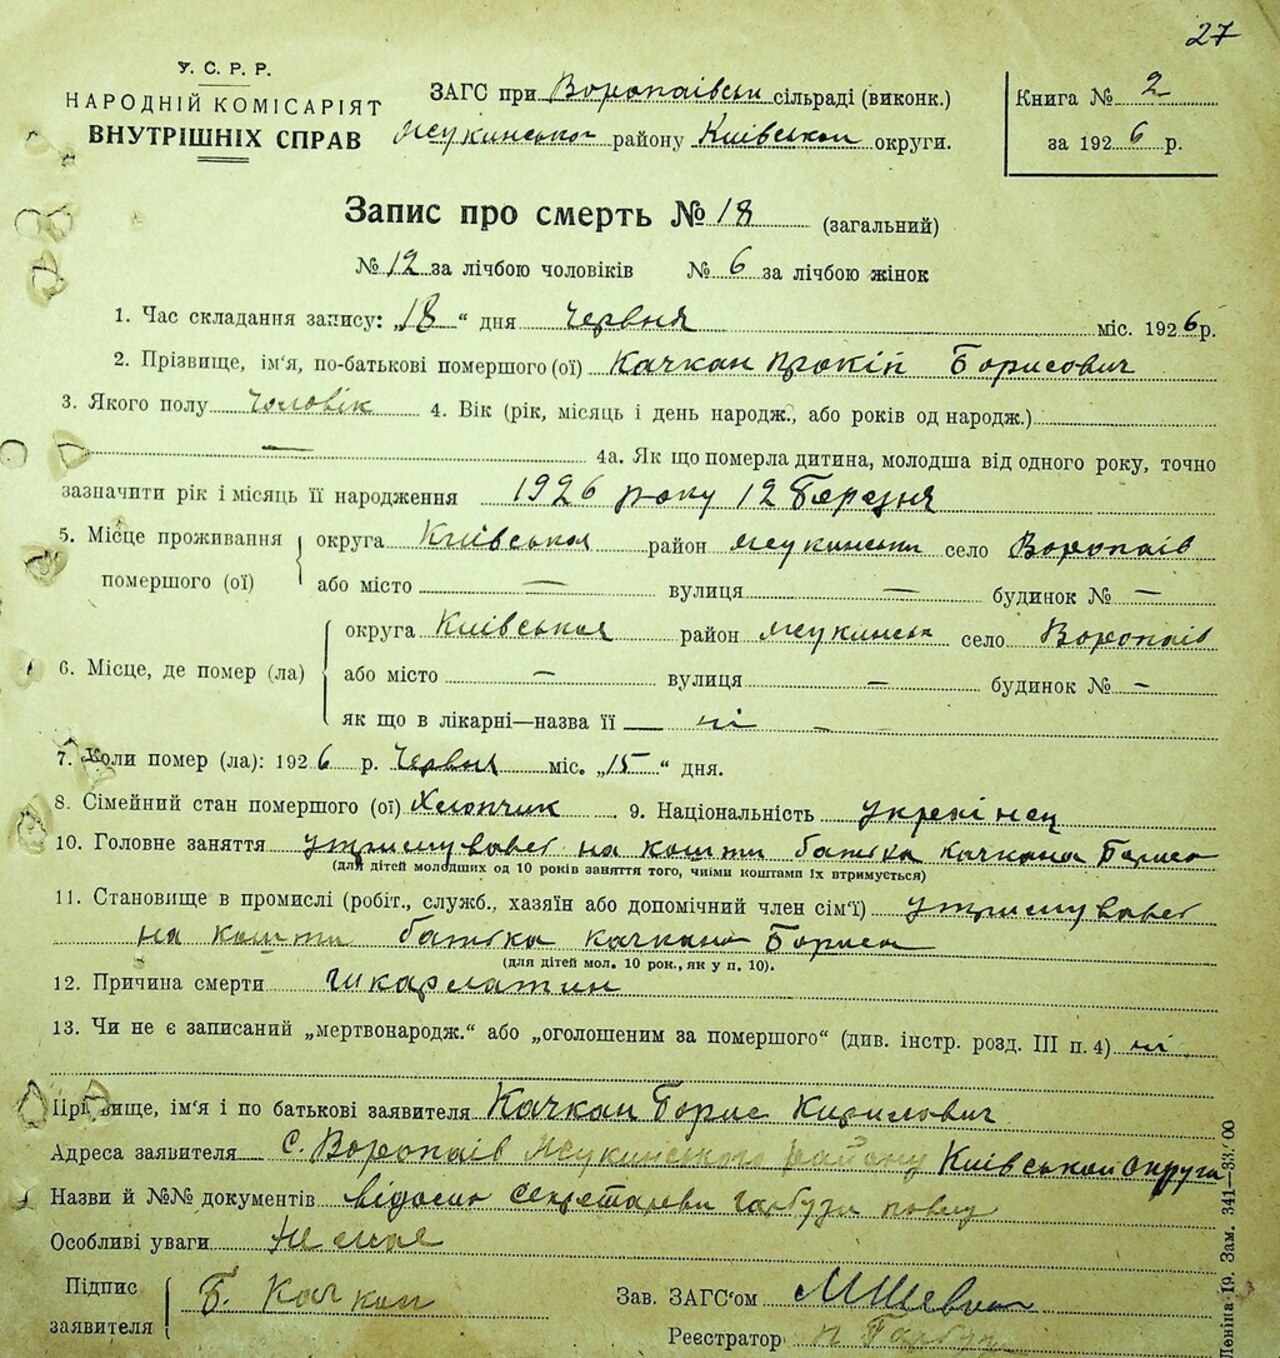 27
У. С. Р. Р.
НАРОДНІЙ КОМІСАРІЯТ
ВНУТРІШНІХ СПРАВ
ЗАГС при Воропаівськ сільраді (виконк.)
Жукинської району Київської округи.
Книга № 2
за 1926 р.
Запис про смерть № 18 (загальний)
№ 12 за лічбою чоловіків № 6 за лічбою жінок
1. Час складання запису: „18“ дня Червня міс. 1926 р.
2. Прізвище, ім‘я, по-батькові помершого (ої) Качкан Прокіп Борисович
3. Якого полу Чоловік 4. Вік (рік, місяць і день народж., або років од народж.)
— 4а. Як що померла дитина, молодша від одного року, точно
зазначити рік і місяць її народження 1926 року 12 Березня
5. Місце проживання помершого (ої) округа Київськая район Жукинськи село Воропаів
або місто — вулиця — будинок № —
6. Місце, де помер (ла) округа Київськая район Жукинськ село Воропаів
або місто — вулиця — будинок № —
як що в лікарні—назва її — ні —
7. Коли помер (ла): 1926 р. Червня міс. „15“ дня.
8. Сімейний стан помершого (ої) Хлопчик 9. Національність украінец
10. Головне заняття утримувавсь на кошти батька Качкана Бориса
(для дітей молодших од 10 років заняття того, чиїми коштами їх втримується)
11. Становище в промислі (робіт., служб., хазяїн або допомічний член сім‘ї) утримувавсь
на кошти батька Качкана Бориса
(для дітей мол. 10 рок., як у п. 10).
12. Причина смерти шкарлатин
13. Чи не є записаний „мертвонародж.“ або „оголошеним за помершого“ (див. інстр. розд. III п. 4) ні
Прізвище, ім‘я і по батькові заявителя Качкан Борис Кирилович
Адреса заявителя с. Воропаів Жукинського району Київськой округи
Назви й №№ документів відомо секретареви Гарбузу
Особливі уваги Не має
Підпис заявителя Б. Качкан
Зав. ЗАГС‘ом МШевч
Реестратор П Гарбуз
Леніна 19. Зам. 341—33.